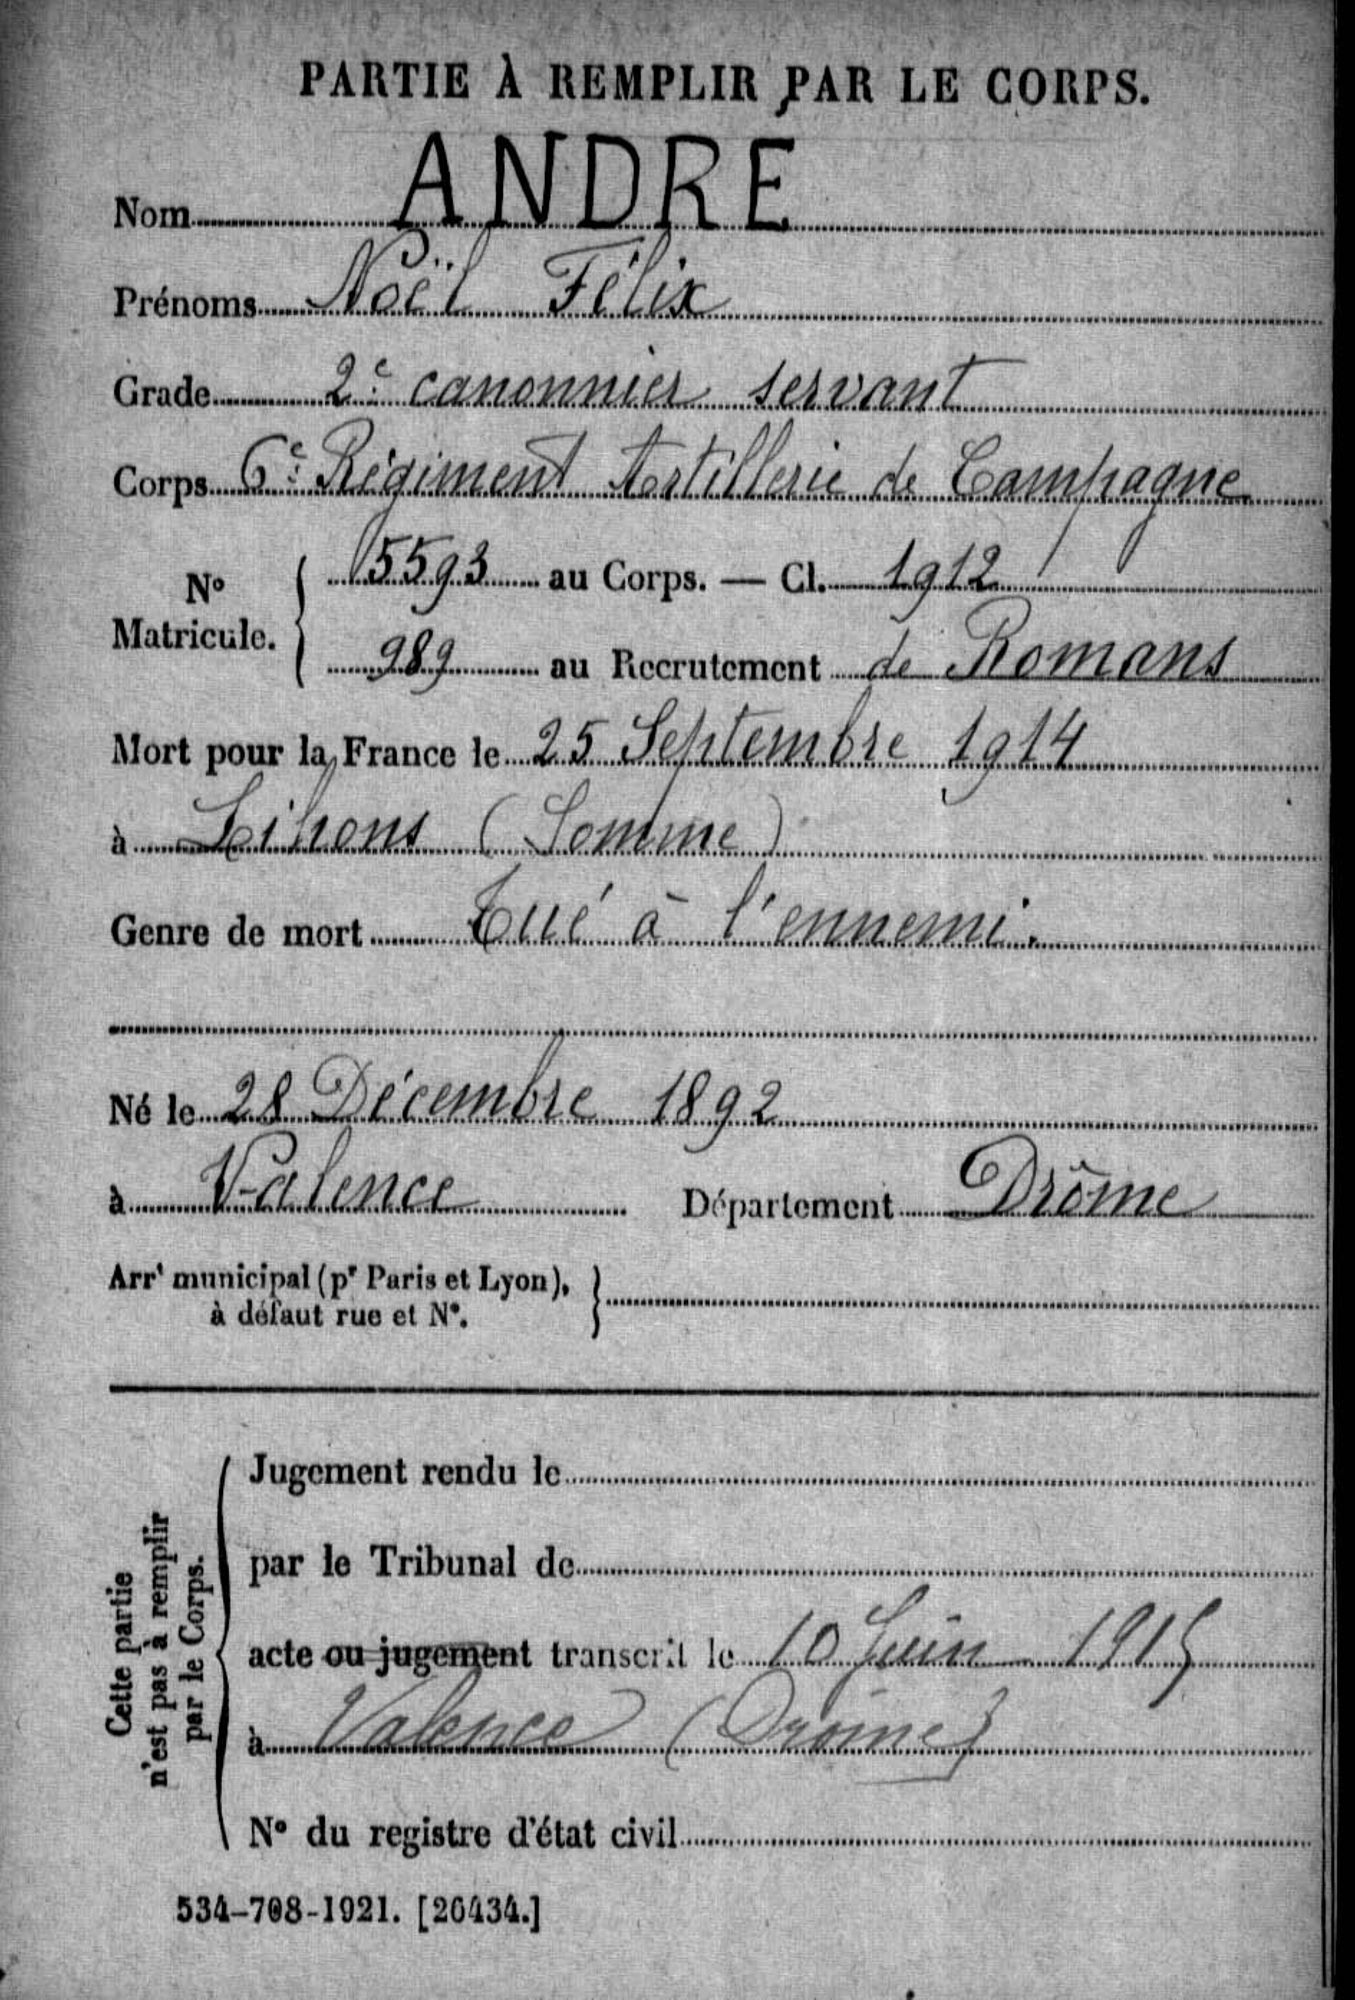 PARTIE À REMPLIR PAR LE CORPS.
Nom ANDRÉ
Prénoms Noël Félix
Grade 2e canonnier servant
Corps 6e Régiment Artillerie de Campagne
No Matricule. { 5593 au Corps. — Cl. 1912
989 au Recrutement de Romans
Mort pour la France le 25 Septembre 1914
à Lihons (Somme)
Genre de mort Tué à l'ennemi.
Né le 28 Décembre 1892
à Valence Département Drôme
Arrt municipal (pr Paris et Lyon), }
à défaut rue et No.
Cette partie
n'est pas à remplir
par le Corps.
Jugement rendu le
par le Tribunal de
acte ou jugement transcrit le 10 Juin 1915
à Valence (Drôme)
No du registre d'état civil
534-708-1921. [26434.]